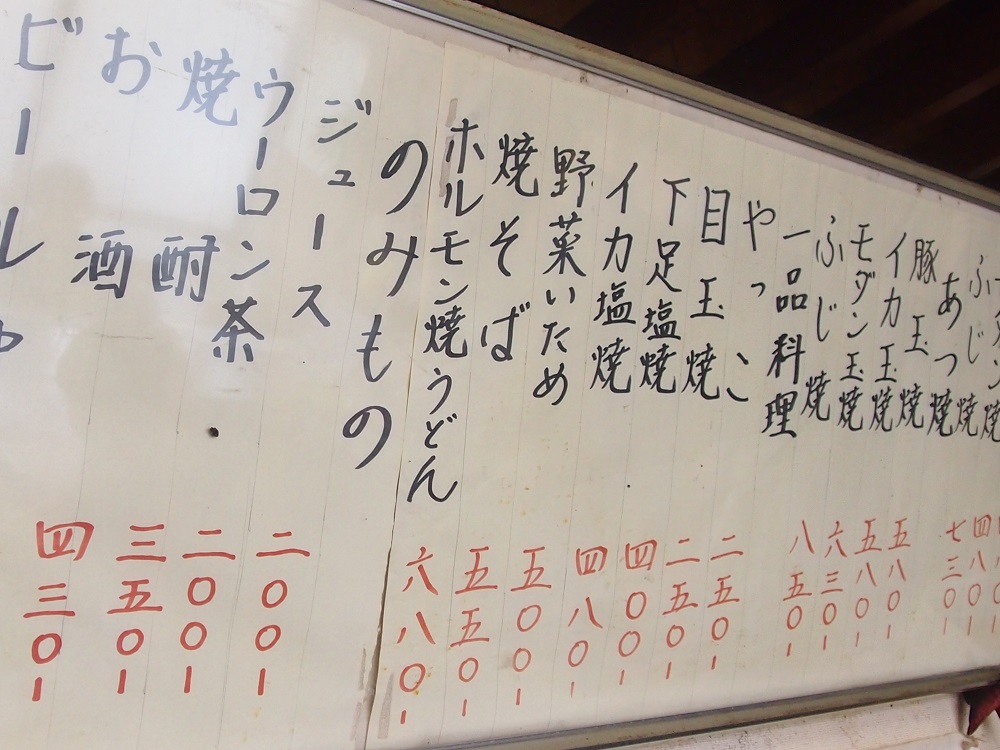 ン焼 四八〇-
ふじ焼 七三〇-
あつ焼
豚玉焼 五八〇-
イカ玉焼 五八〇-
モダン玉焼 六三〇-
ふじ焼 八五〇-
一品料理
やっこ 二五〇-
目玉焼 二五〇-
下足塩焼 四〇〇-
イカ塩焼 四八〇-
野菜いため 五〇〇-
焼そば 五五〇-
ホルモン焼うどん 六八〇-
のみもの
ジュース 二〇〇-
ウーロン茶 二〇〇-
焼酎 三五〇-
お酒 四三〇-
ビール